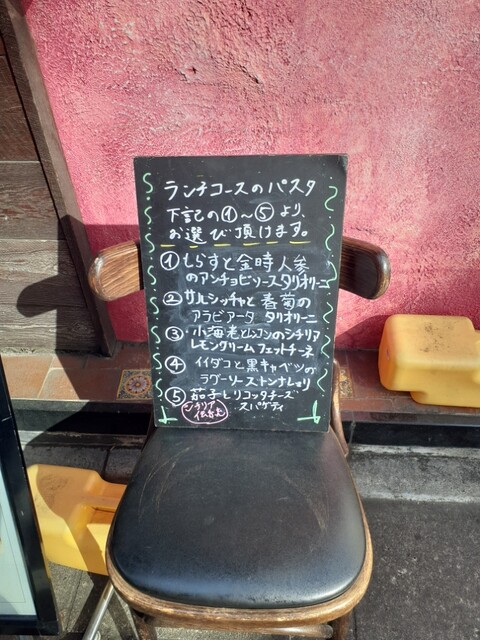 ランチコースのパスタ
下記の①〜⑤より、
お選び頂けます。
①しらすと金時人参
のアンチョビソースタリオリーニ
②サルシッチャと春菊の
アラビアータ タリオリーニ
③小海老とレンコンのシチリア
レモンクリームフェットチーネ
④イイダコと黒キャベツの
ラグーソース
⑤茄子とリコッタチーズ
シチリア
スパゲティ